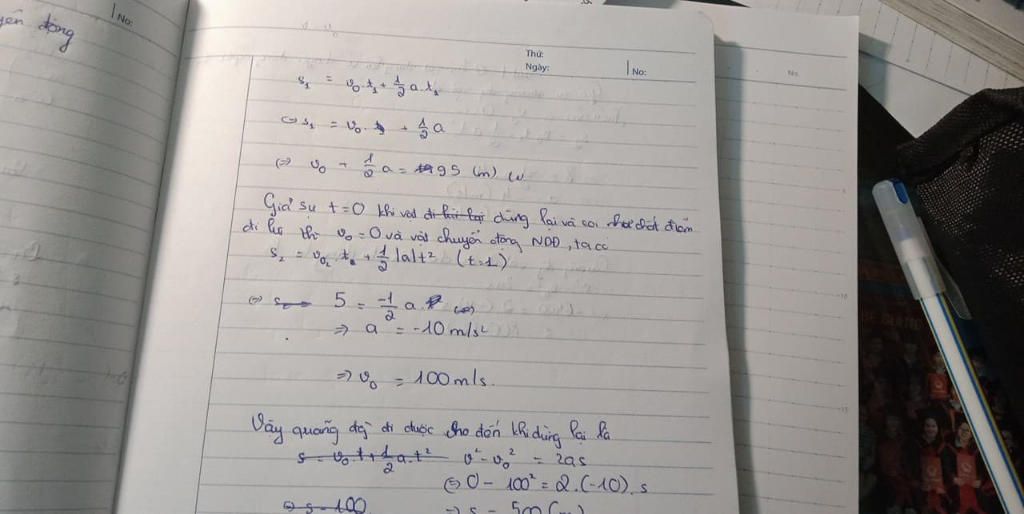 No:
yển động
Thứ:
Ngày:
No:
No:
s₁ = v₀.t₁ + 1/2 a.t₁
⇔ s₁ = v₀. + 1/2 a
⇔ v₀ + 1/2 a = 95 (m)
Giả sử t=0 khi vật dừng lại và coi chất điểm
đi lùi thì v₀ = 0 và vật chuyển động NDĐ, ta có
s₂ = v₀₂ t + 1/2 |a|t² (t=1)
⇔ 5 = -1/2 a.
⇒ a = -10 m/s²
⇒ v₀ = 100 m/s.
Vậy quãng đg đi được cho đến khi dừng lại là
s = v₀.t + 1/2 a.t² v² - v₀² = 2as
⇔ 0 - 100² = 2.(-10).s
⇔ s = 100 ⇒ s = 500 (m)